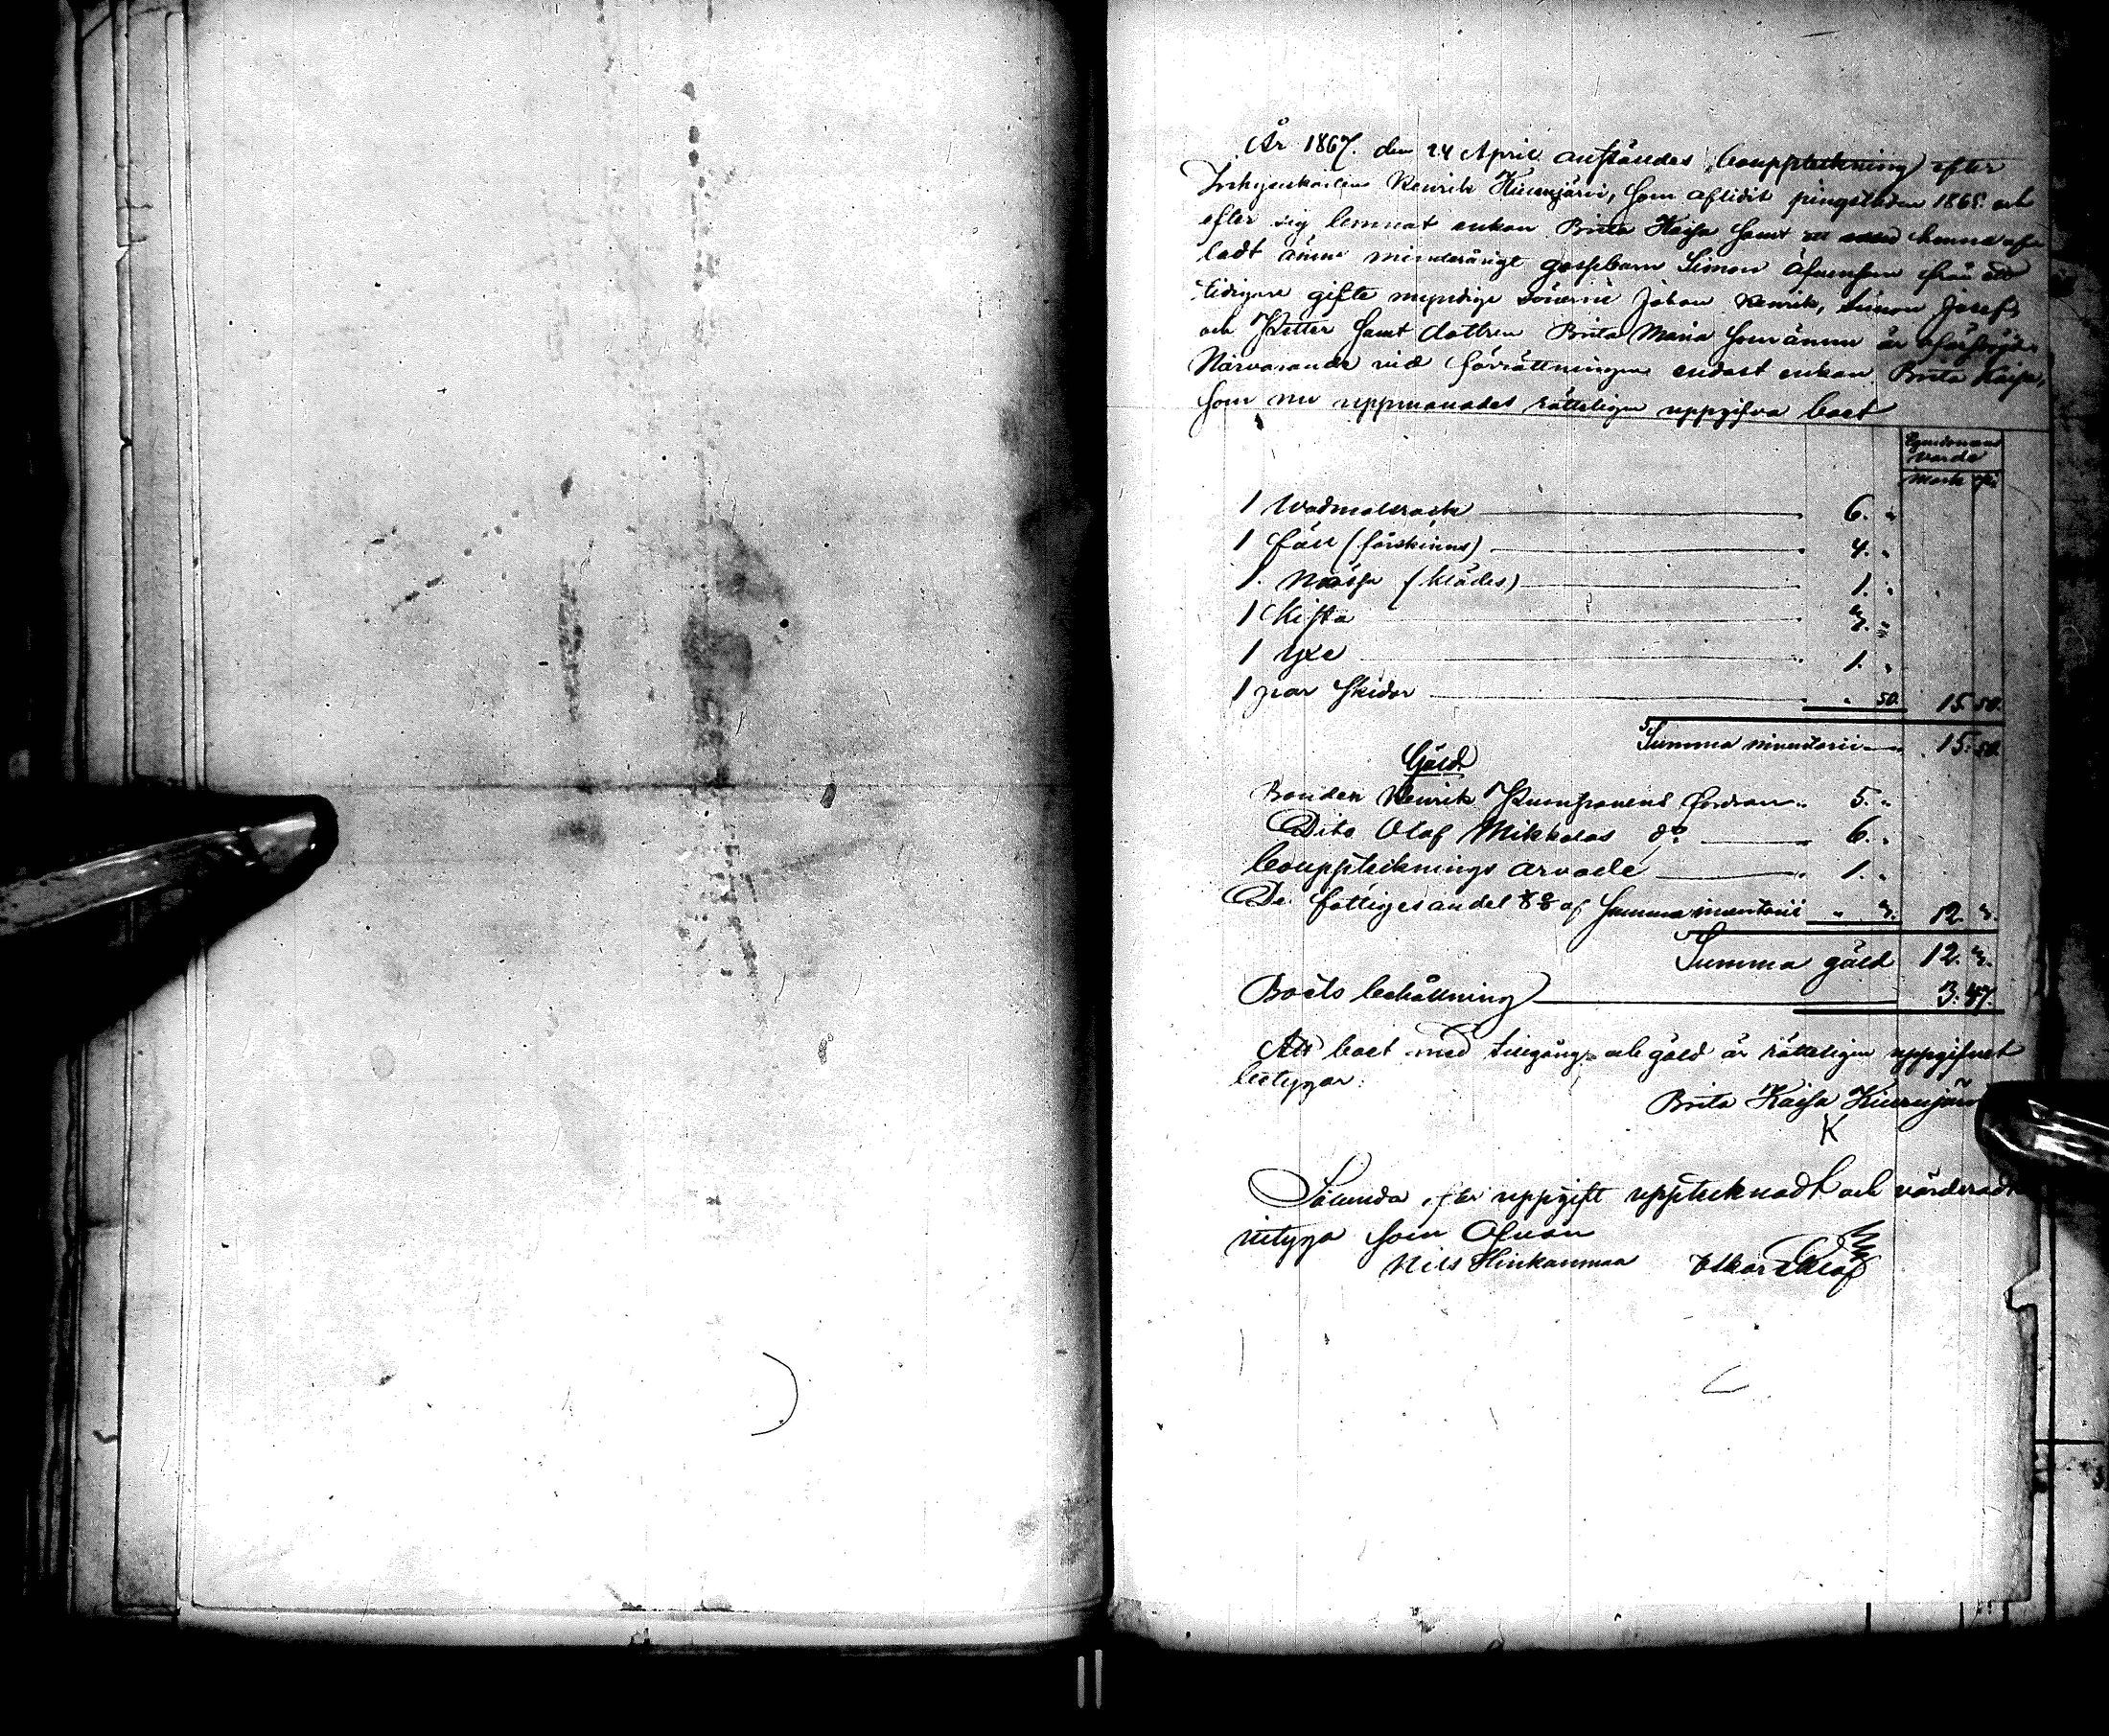 År 1867. den 24 April anstäldes bouppteckning efter
Inhyseskarlen Henrik Kinnujärvi, som aflidit pingsttiden 1865 och
efter sig lemnat enkan Brita Kaisa samt ett med henne af-
ladt ännu minderårigt gossebarn Simon äfvensom från ett
tidigare gifte myndige sönerne Johan Henrik, Simon Josef,
och Petter samt dottren Brita Maria som ännu är oförsörjd.
Närvarande vid förrättningen endast enkan Brita Kaisa,
som nu uppmanades rätteligen uppgifva boet
Egendomens
värde
Mark pi
1 Wadmalsrock 6. "
1 fäll (fårskinns) 4. "
1. Mössa (klädes) 1. "
1 Kista 3. "
1 yxe 1. "
1 par skidor " 50. 15 50.
Summa inventarii 15. 50.
Gäld.
Bonden Henrik fordran 5. "
Dito Olaf Mikkolas do 6. "
boupptecknings arvode 1. "
De fattiges andel af Summa inventarii " 3. 12 3.
Summa gäld 12. 3.
Boets behållning 3. 47.
Att boet med tillgång och gäld är rätteligen uppgifvet
betygar:
Brita Kaisa Kinnujärvi
K
Sålunda efter uppgift upptecknadt och värderadt
vityga som Ofvan
Nils Hinkanmaa